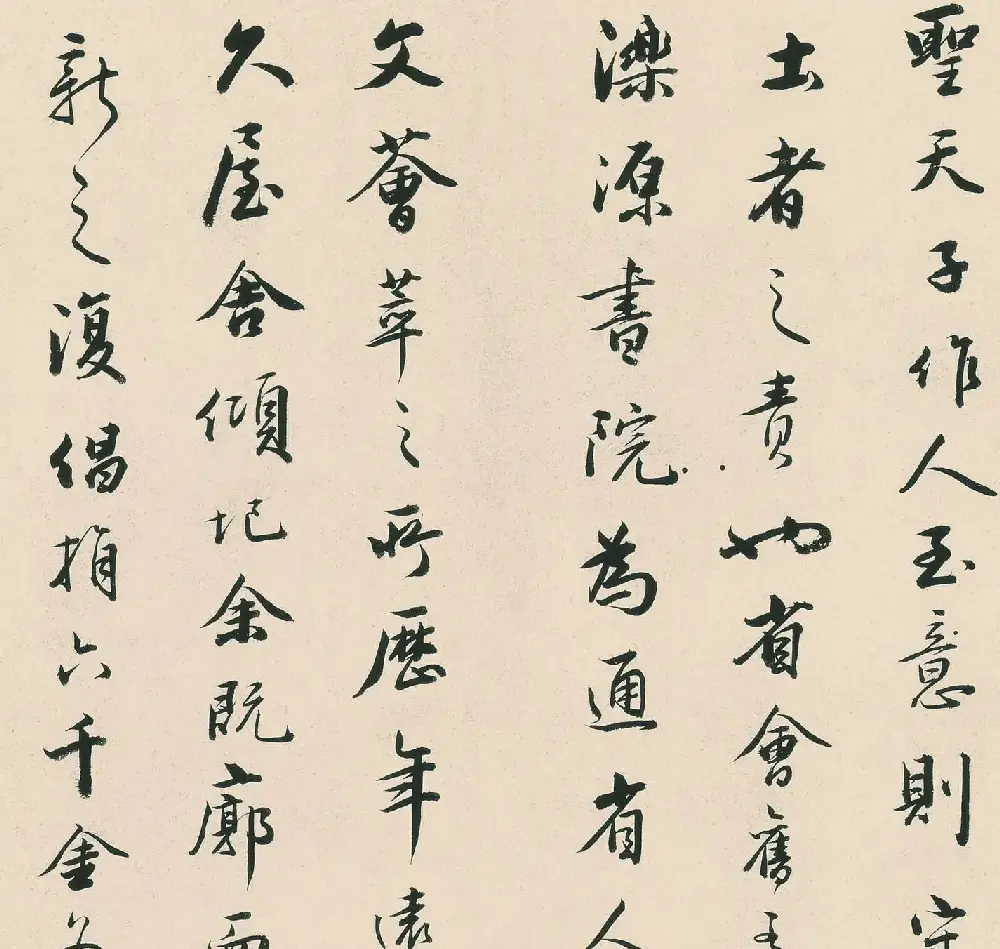 聖天子作人至意則守
土者之責也省會舊有
濼源書院為通省人
文薈萃之所歷年遠
久屋舍傾圮余既廓而
新之復倡捐六千金